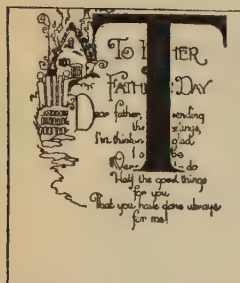 T
To
Father's Day
Dear Father, sending
the
I'm thinking glad
I
be
do
Half the good things
for you
That you have done always
for me!